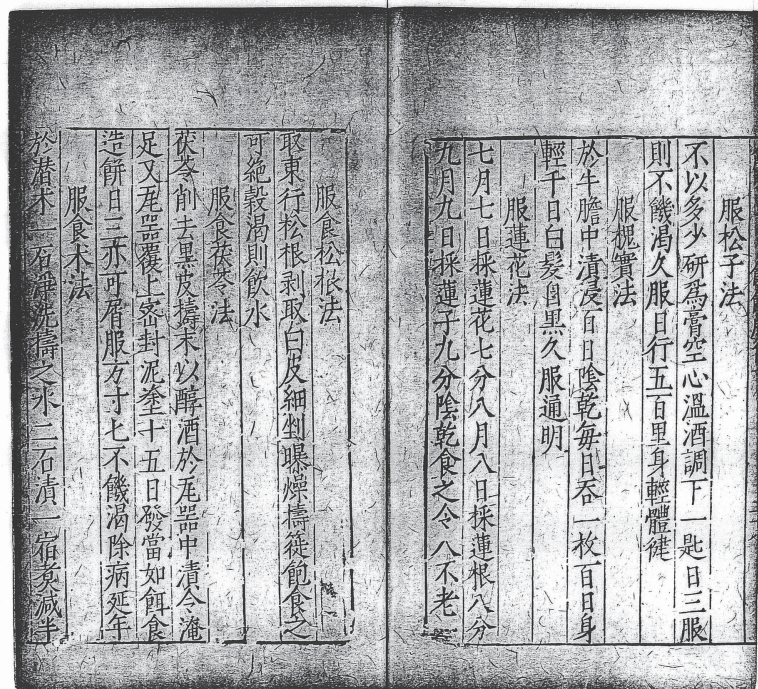 服松子法
不以多少研爲膏空心溫酒調下一匙日三服
則不饑渴久服日行五百里身輕體徤
服槐實法
於牛膽中漬浸百日陰乾每日吞一枚百日身
輕千日白髮自黑久服通明
服蓮花法
七月七日採蓮花七分八月八日採蓮根八分
九月九日採蓮子九分陰乾食之令人不老
服食松根法
取東行松根剥取白皮細剉曝燥擣篵飽食之
可絶穀渴則飲水
服食茯苓法
茯苓削去黑皮擣末以醇酒於瓦器中漬令淹
足又瓦器覆上宻封泥塗十五日發當如餌食
造餅日三亦可屑服方寸匕不饑渴除病延年
服食术法
於潜术一石淨洗擣之水二石漬一宿煮减半